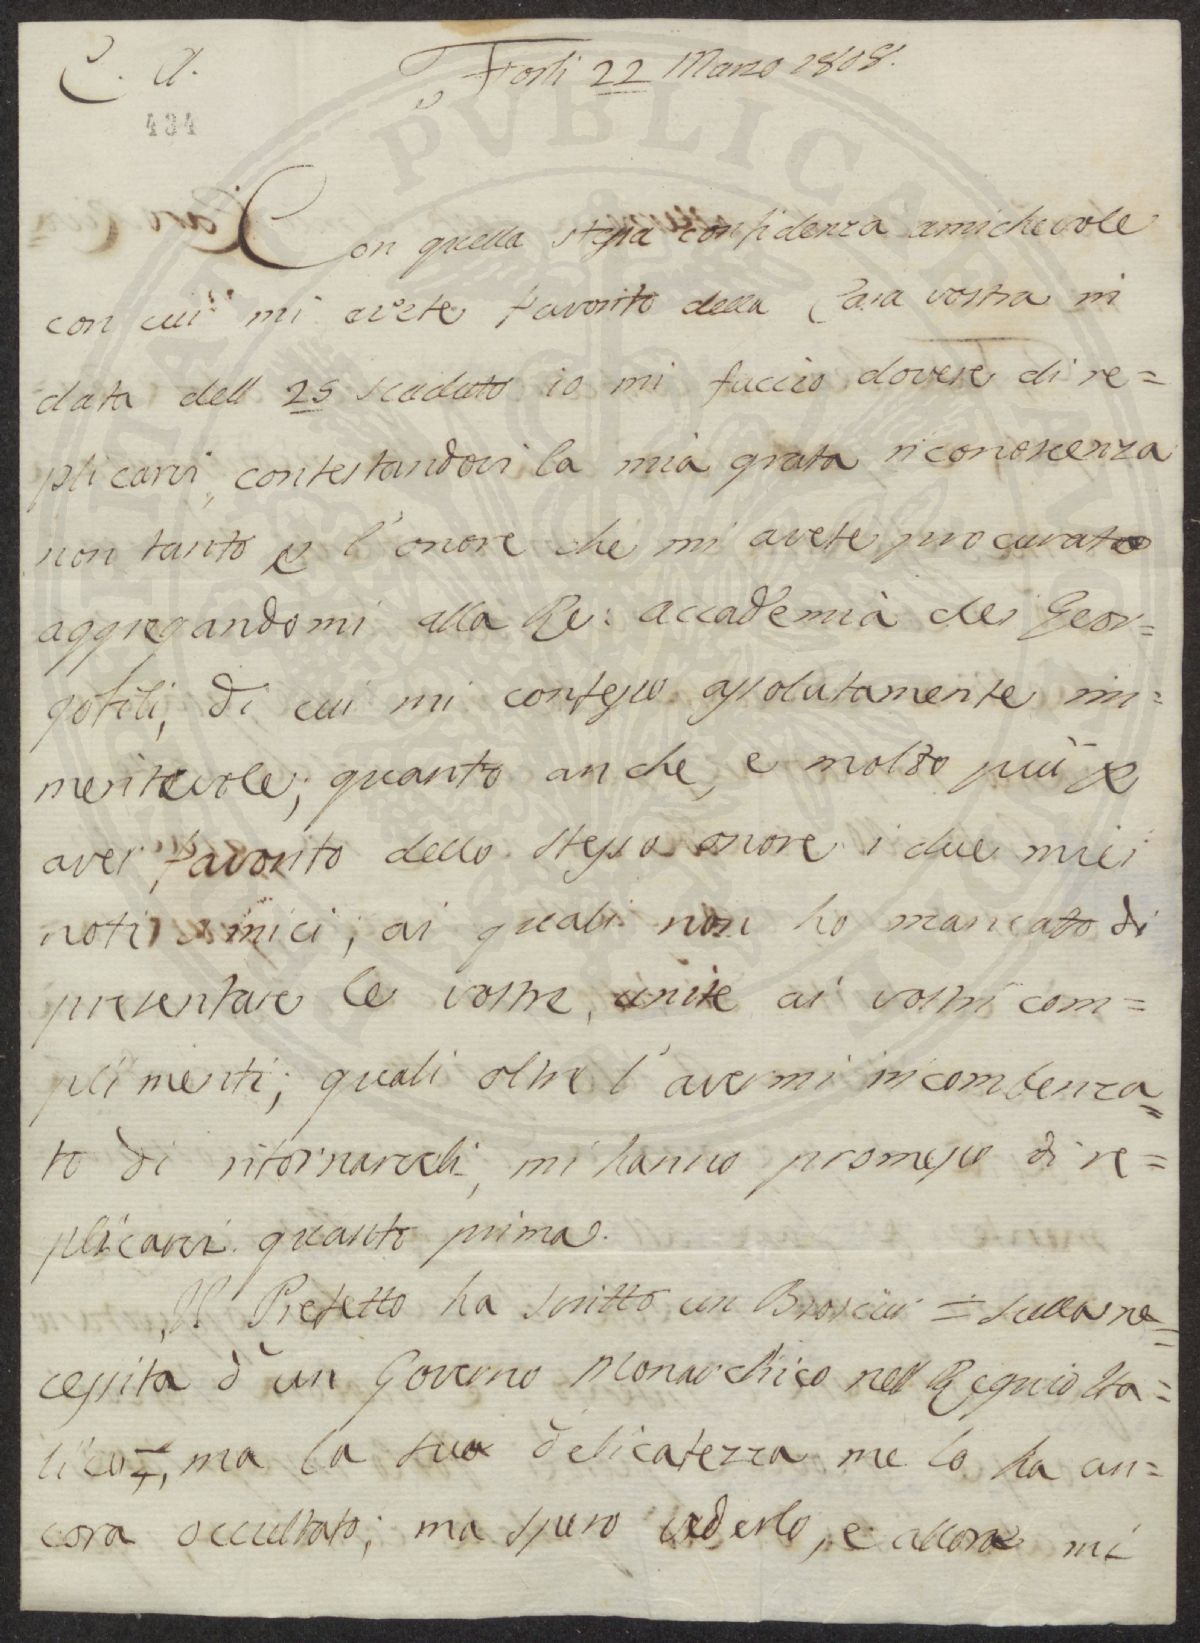 C. A. Forlì 22 Marzo 1808.
434
Con quella stessa confidenza amichevole
con cui mi avete favorito della Cara vostra in
data dell 25 scaduto io mi faccio dovere di re=
plicarvi, contestandovi la mia grata riconoscenza
non tanto p l'onore che mi avete procurato
aggregandomi alla Re: accademia dei Geor=
gofili, di cui mi confesso assolutamente im=
meritevole; quanto anche, e molto più p
aver favorito dello stesso onore i due miei
noti amici; ai quali non ho mancato di
presentare le vostre, unite ai vostri com=
plimenti; quali oltre l'avermi incombenza=
to di ritornarveli, mi hanno promesso di re=
plicarvi quanto prima.
Il Prefetto ha scritto un = sulla ne=
cessita d'un Governo Monarchico nell Regno Ita=
lico =, ma la sua delicatezza me lo ha an=
cora occultato; ma spero vederlo, e allora mi
PVBLICAE